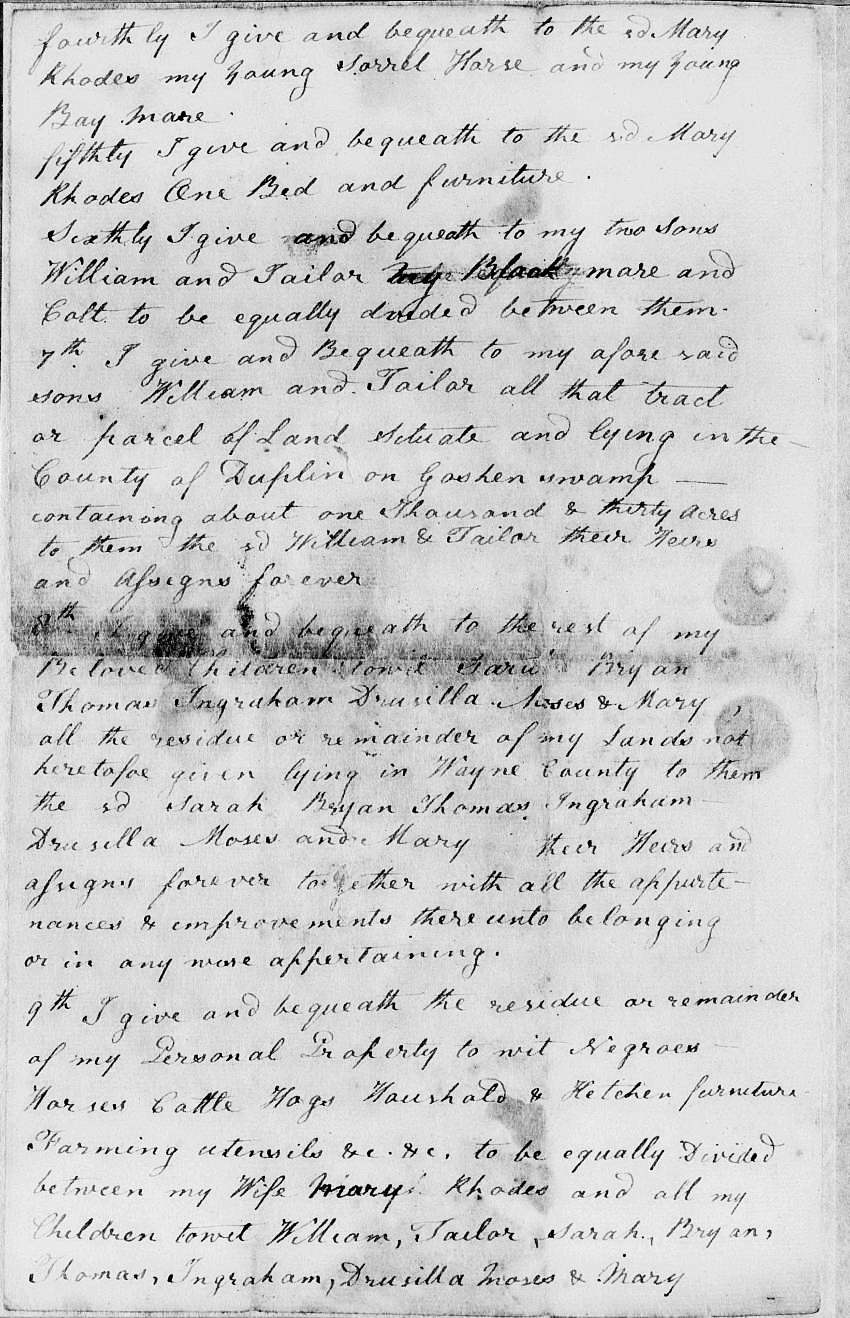 fourthly I give and bequeath to the sd Mary
Rhodes my young Sorrel Horse and my young
Bay mare.
fifthly I give and bequeath to the sd Mary
Rhodes One Bed and furniture.
Sixthly I give and bequeath to my two Sons
William and Tailor my Black mare and
Colt to be equally divided between them.
7th I give and Bequeath to my afore said
sons William and Tailor all that tract
or parcel of Land Situate and lying in the
County of Duplin on Goshen swamp
containing about one Thousand & thirty acres
to them the sd William & Tailor their Heirs
and Assigns forever
8th I give and bequeath to the rest of my
Beloved Children towit Bryan
Thomas Ingraham Drusilla Moses & Mary,
all the residue or remainder of my Lands not
heretofoe given lying in Wayne County to them
the sd Sarah Bryan Thomas Ingraham
Drusilla Moses and Mary their Heirs and
assigns forever together with all the appurte-
nances & improvements thereunto belonging
or in any wise appertaining.
9th I give and bequeath the residue or remainder
of my Personal Property to wit Negroes
Horses Cattle Hogs Houshold & Ketchen furniture
Farming utensils &c. &c. to be equally Divided
between my Wife Mary Rhodes and all my
Children towit William, Tailor, Sarah, Bryan,
Thomas, Ingraham, Drusilla Moses & Mary